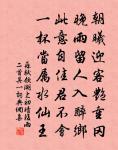 朝曦迎客艷重岡
晚雨留人入醉鄉
此意自佳君不會
一杯當屬水仙王
蘇軾飲湖上初晴後雨
二首其一